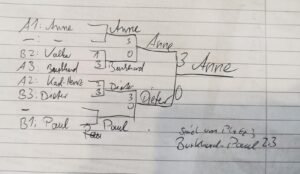 A1: Anne
Anne
— : —
3
Anne
0
B2: Valko 1
3 Anne
A3: Burkhard 3
Burkhard
A2: Karl-Heinz
Dieter
B3: Dieter 3
3
Dieter
0
—
0
B1: Paul
Paul
Spiel um Platz 3
Burkhard - Paul 2:3